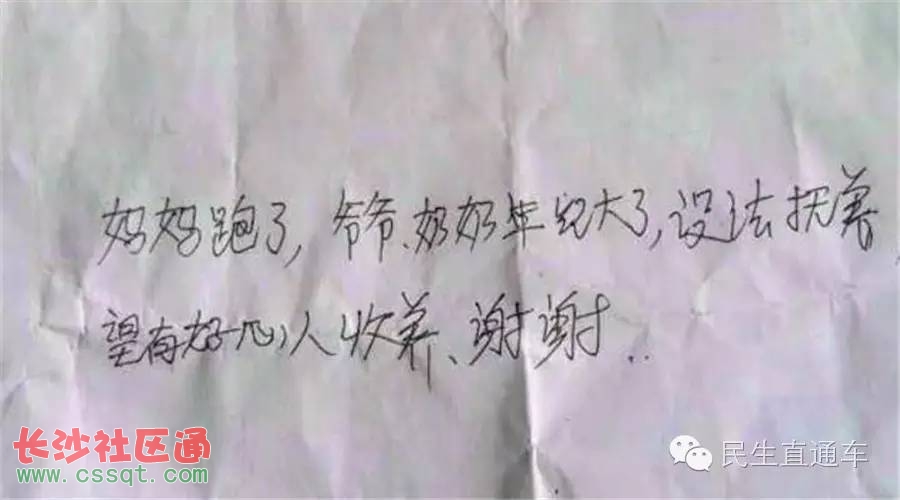 妈妈跑了，爷爷、奶奶年纪大了，没法抚养
望有好心人收养、谢谢..
长沙社区通
www.cssqt.com
民生直通车